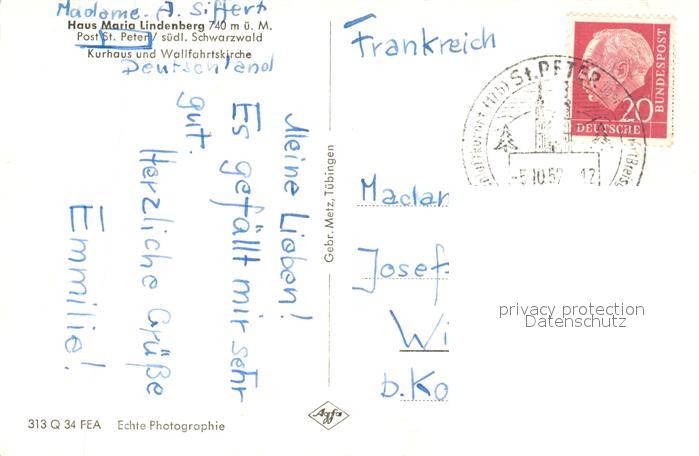 Madame. A. Siffert
Haus Maria Lindenberg 740 m ü. M.
Post St. Peter / südl. Schwarzwald
Kurhaus und Wallfahrtskirche
Deutschland
Meine Lieben!
Es gefällt mir sehr
gut.
Herzliche Grüße
Emmilie!
313 Q 34 FEA Echte Photographie
Gebr. Metz, Tübingen
Agfa
Frankreich
St. PETER
-5.10.57 12
20
DEUTSCHE
BUNDESPOST
Madam
Josef
Wi
b. Ko
privacy protection
Datenschutz